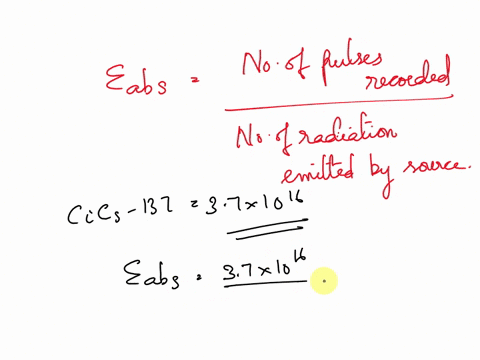 εabs = No. of pulses recorded
No. of radiation emitted by source.
CiCs - 137 = 3.7 × 10^16
εabs = 3.7 × 10^16